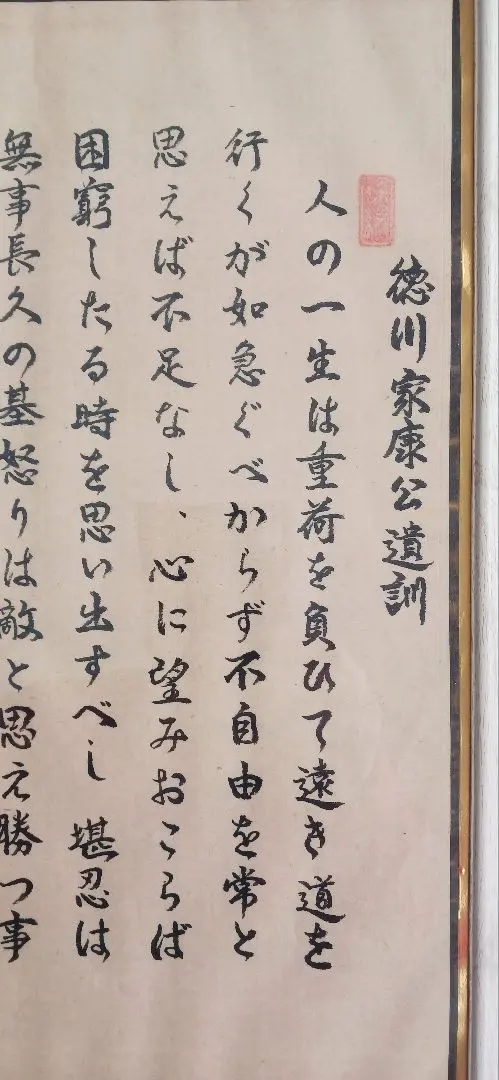 徳川家康公遺訓
人の一生は重荷を負ひて遠き道を
行くが如急ぐべからず不自由を常と
思えば不足なし、心に望みおこらば
困窮したる時を思い出すべし堪忍は
無事長久の基怒りは敵と思え勝つ事